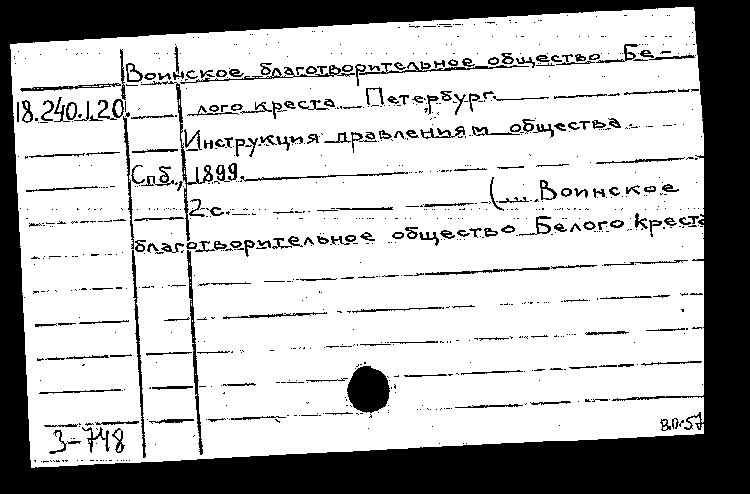 Воинское благотворительное общество Бе-
18.240.1.20. лого креста. Петербург.
Инструкция правлениям общества.
Спб., 1899.
2с. (... Воинское
благотворительное общество Белого креста
3-748